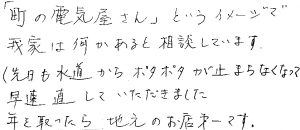 「町の電気屋さん」というイメージで
我家は何かあると相談しています。
(先日も水道からポタポタが止まらなくなって
早速直していただきました
年を取ったら地元のお店第一です。